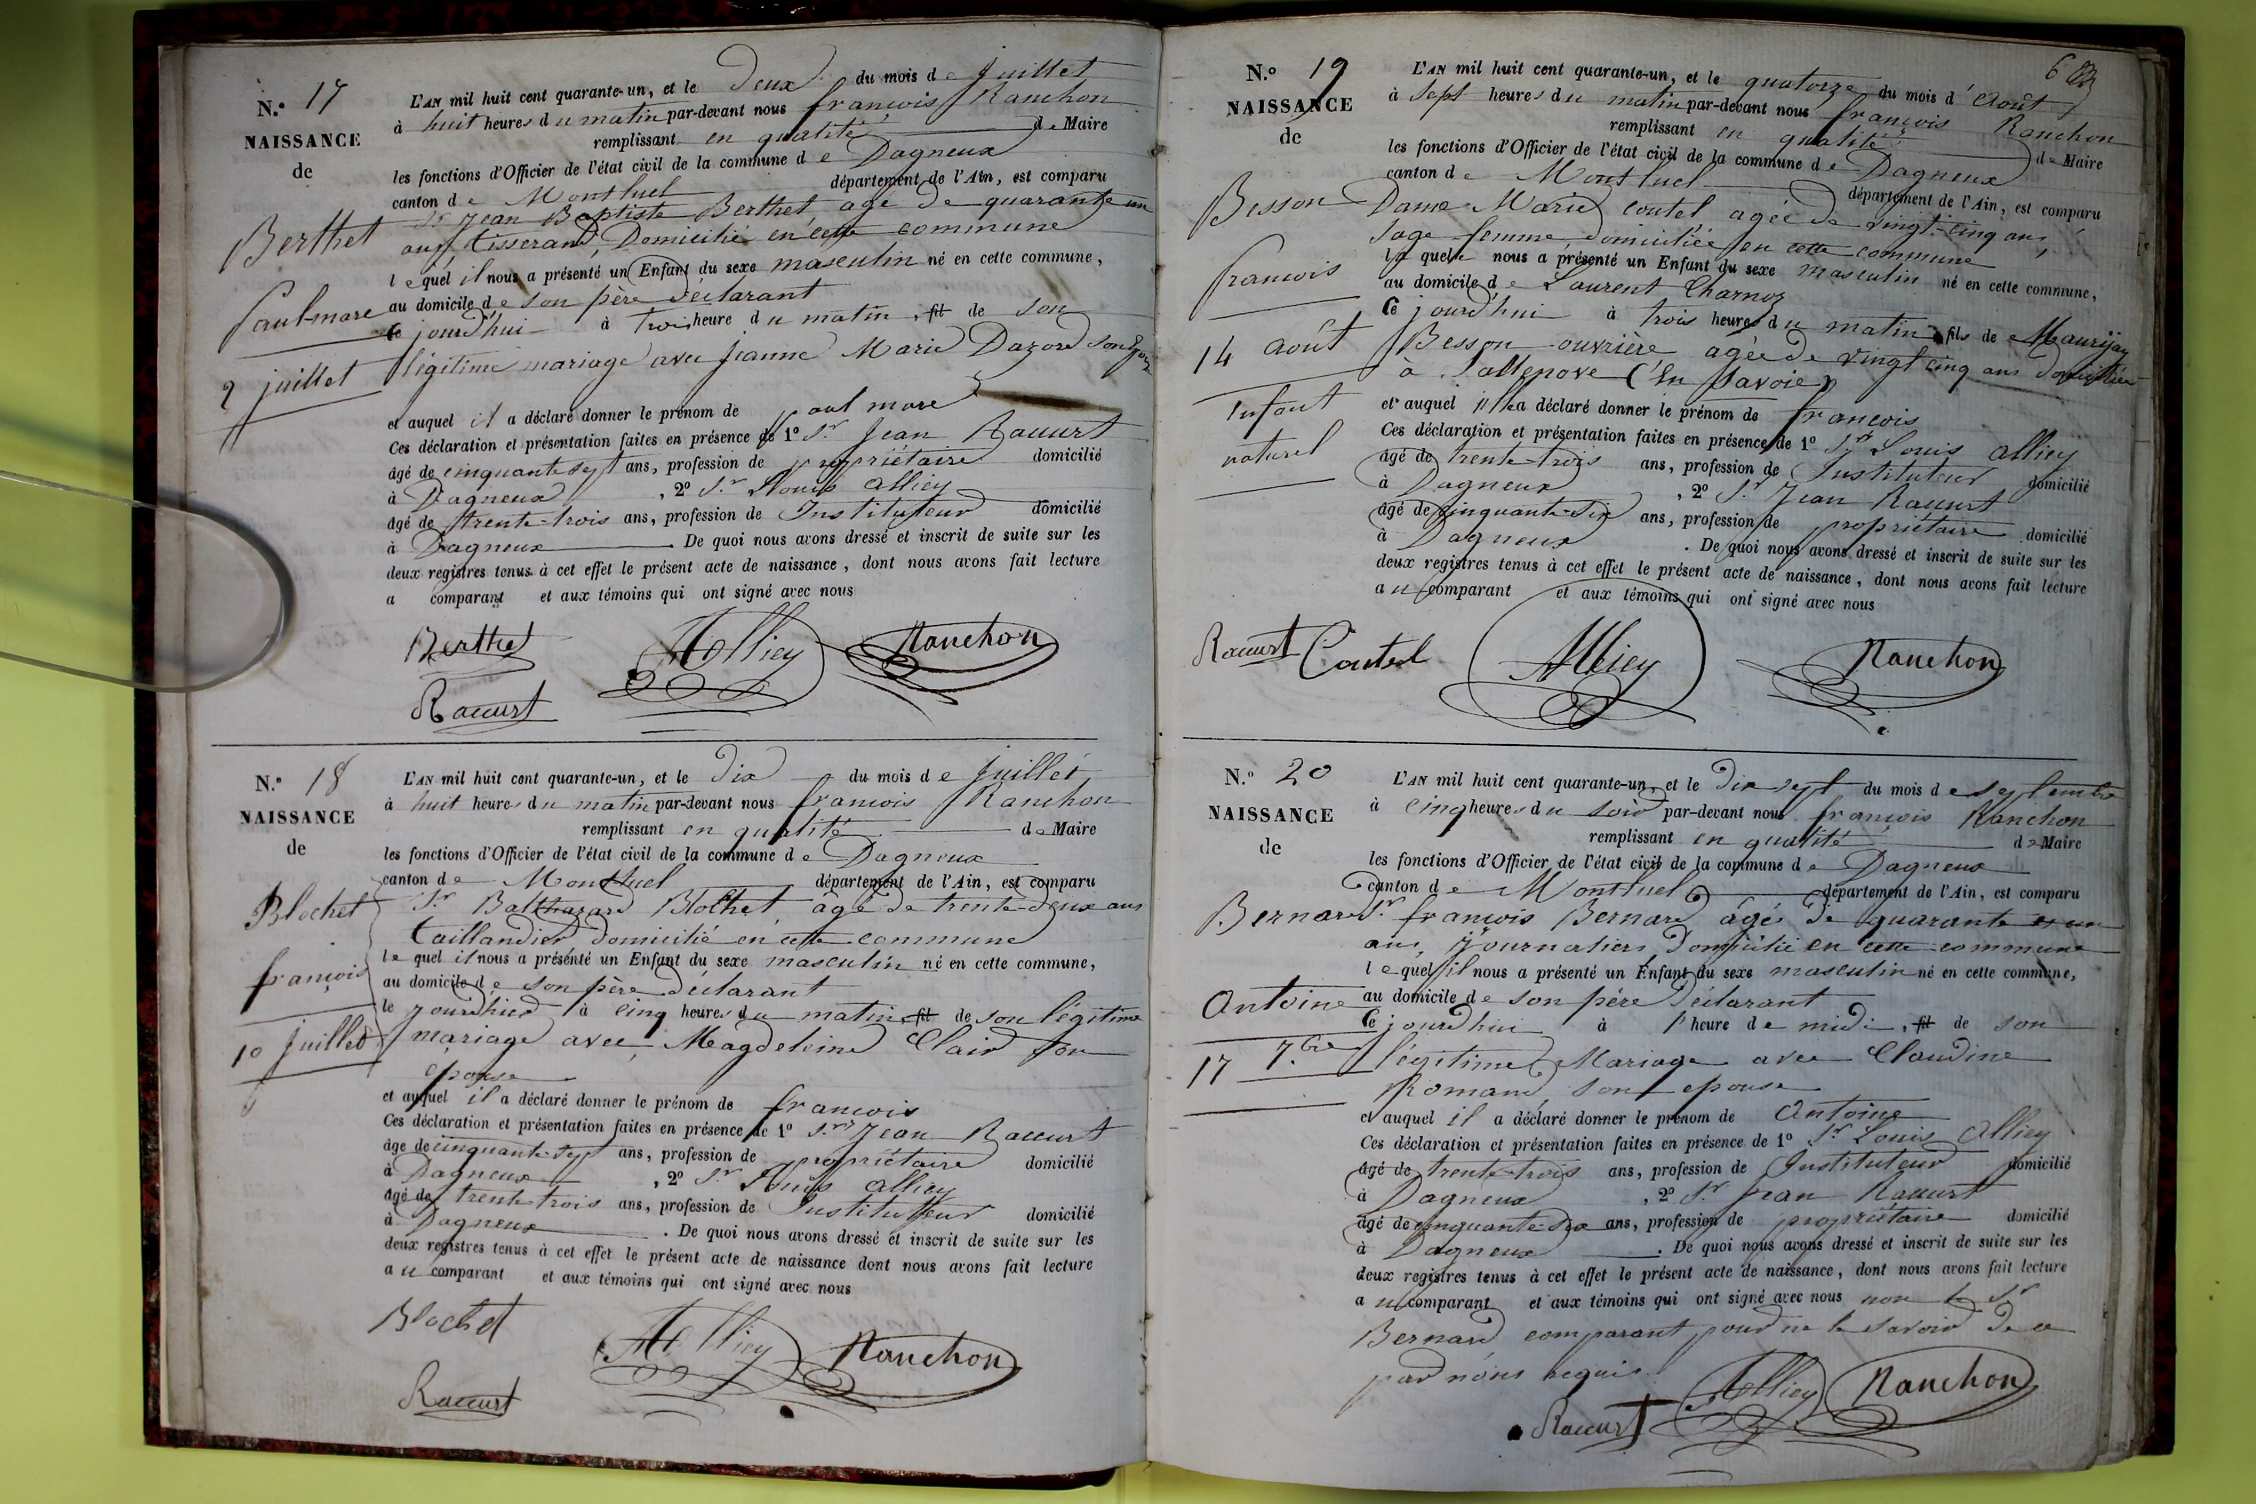 N.º 17
NAISSANCE
de
Berthet
Paul-marc
2 juillet
L'AN mil huit cent quarante-un, et le deux du mois de Juillet
à huit heures du matin par-devant nous françois Ranchon
remplissant en qualité de Maire
les fonctions d'Officier de l'état civil de la commune de Dagneux
canton de Montluel département de l'Ain, est comparu
Sr Jean Baptiste Berthet, agé de quarante un
ans, tisserand, Domicilié en cette commune
lequel il nous a présenté un Enfant du sexe masculin né en cette commune,
au domicile de son père déclarant
Ce jourd'hui à trois heure du matin, fil de son
légitime mariage avec Jeanne Marie Dazord son
et auquel il a déclaré donner le prénom de paul marc
Ces déclaration et présentation faites en présence de 1º Sr Jean Raccurt
âgé de cinquante sept ans, profession de propriétaire domicilié
à Dagneux, 2º Sr Louis alliey
âgé de trente-trois ans, profession de Instituteur domicilié
à Dagneux. De quoi nous avons dressé et inscrit de suite sur les
deux registres tenus à cet effet le présent acte de naissance, dont nous avons fait lecture
a comparant et aux témoins qui ont signé avec nous
Berthet Alliey Ranchon
Raccurt
N.º 18
NAISSANCE
de
Blochet
françois
10 Juillet
L'AN mil huit cent quarante-un, et le dix du mois de Juillet
à huit heures du matin par-devant nous françois Ranchon
remplissant en qualité de Maire
les fonctions d'Officier de l'état civil de la commune de Dagneux
canton de Montluel département de l'Ain, est comparu
Sr Balthazard Blochet, âgé de trente-deux ans
taillandier domicilié en cette commune
lequel il nous a présenté un Enfant du sexe masculin né en cette commune,
au domicile de son père déclarant
le jourd'hui à cinq heures du matin, fil de son légitime
mariage avec Magdeleine Clair son
épouse
et auquel il a déclaré donner le prénom de françois
Ces déclaration et présentation faites en présence de 1º Sr Jean Raccurt
âgé de cinquante-sept ans, profession de propriétaire domicilié
à Dagneux, 2º Sr Louis alliey
âgé de trente trois ans, profession de Instituteur domicilié
à Dagneux. De quoi nous avons dressé et inscrit de suite sur les
deux registres tenus à cet effet le présent acte de naissance dont nous avons fait lecture
au comparant et aux témoins qui ont signé avec nous
Blochet Alliey Ranchon
Raccurt
6
N.º 19
NAISSANCE
de
Besson
françois
14 août
Enfant
naturel
L'AN mil huit cent quarante-un, et le quatorze du mois d'Août
à Sept heures du matin par-devant nous françois Ranchon
remplissant en qualité de Maire
les fonctions d'Officier de l'état civil de la commune de Dagneux
canton de Montluel département de l'Ain, est comparu
Dame Marie coutel agée de vingt-cinq ans,
sage femme domiciliée en cette commune
la quelle nous a présenté un Enfant du sexe masculin né en cette commune,
au domicile de Laurent Charnoz
Ce jourd'hui à trois heures du matin, fils de
Besson ouvrière agée de vingt cinq ans domiciliée
à Sallenove (En Savoie)
et auquel a déclaré donner le prénom de françois
Ces déclaration et présentation faites en présence de 1º Sr Louis alliey
âgé de trente-trois ans, profession de Instituteur domicilié
à Dagneux, 2º Sr Jean Raccurt
âgé de cinquante-six ans, profession de propriétaire domicilié
à Dagneux. De quoi nous avons dressé et inscrit de suite sur les
deux registres tenus à cet effet le présent acte de naissance, dont nous avons fait lecture
au comparant et aux témoins qui ont signé avec nous
Raccurt Coutel Alliey Ranchon
N.º 20
NAISSANCE
de
Bernard
Antoine
17 7.bre
L'AN mil huit cent quarante-un, et le dix sept du mois de septembre
à cinq heures du soir par-devant nous françois Ranchon
remplissant en qualité de Maire
les fonctions d'Officier de l'état civil de la commune de Dagneux
canton de Montluel département de l'Ain, est comparu
Sr françois Bernard âgé de quarante et un
ans, journalier, Domicilié en cette commune
lequel il nous a présenté un Enfant du sexe masculin né en cette commune,
au domicile de son père déclarant
Ce jourd'hui à l'heure de midi, fil de son
légitime Mariage avec Claudine
Romand, son epouse
et auquel il a déclaré donner le prénom de Antoine
Ces déclaration et présentation faites en présence de 1º Sr Louis Alliey
âgé de trente-trois ans, profession de Instituteur domicilié
à Dagneux, 2º Sr Jean Raccurt
âgé de cinquante-six ans, profession de propriétaire domicilié
à Dagneux. De quoi nous avons dressé et inscrit de suite sur les
deux registres tenus à cet effet le présent acte de naissance, dont nous avons fait lecture
au comparant et aux témoins qui ont signé avec nous non le Sr
Bernard comparant pour ne le savoir de ce
par nous requis.
Raccurt Alliey Ranchon